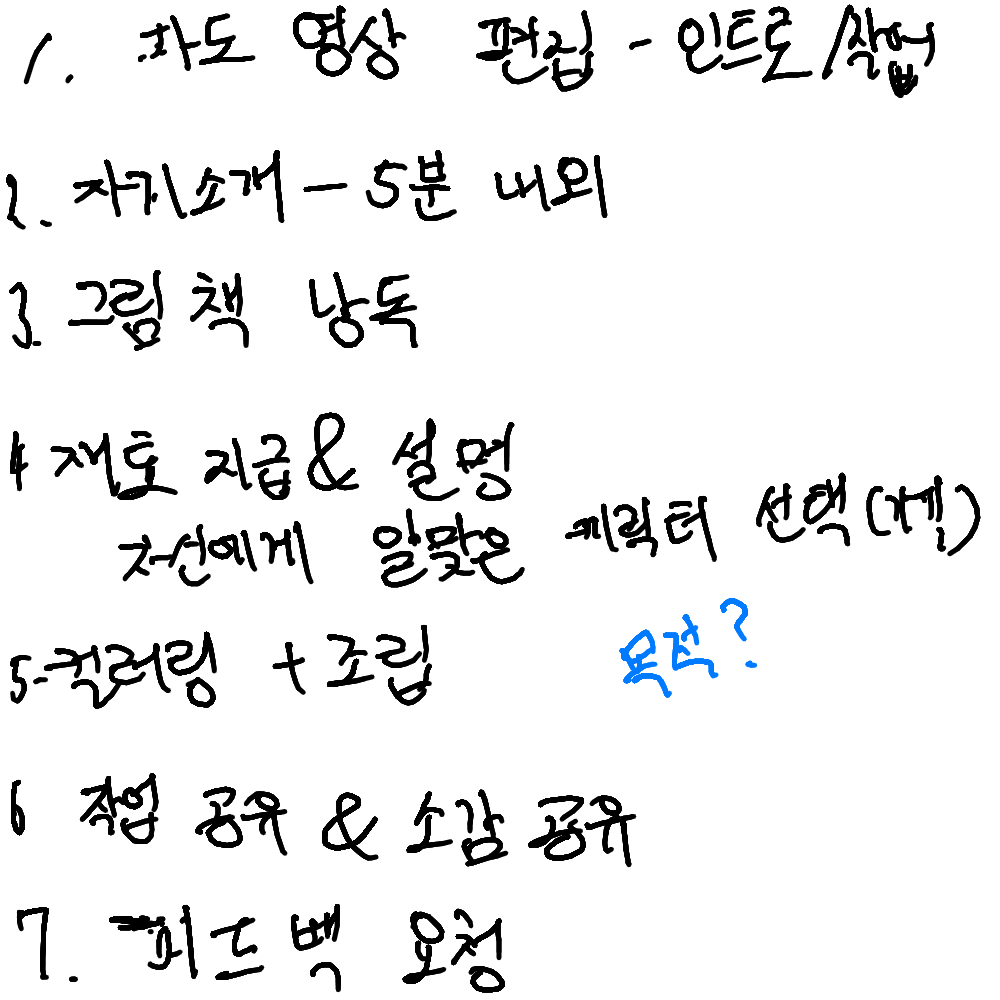 1. 파도 영상 편집 - 인트로/작업
2. 자기소개 - 5분 내외
3. 그림책 낭독
4 재료 지급 & 설명
자신에게 알맞은 캐릭터 선택
5. 컬러링 + 조립
목적?
6 작업 공유 & 소감 공유
7. 피드백 요청